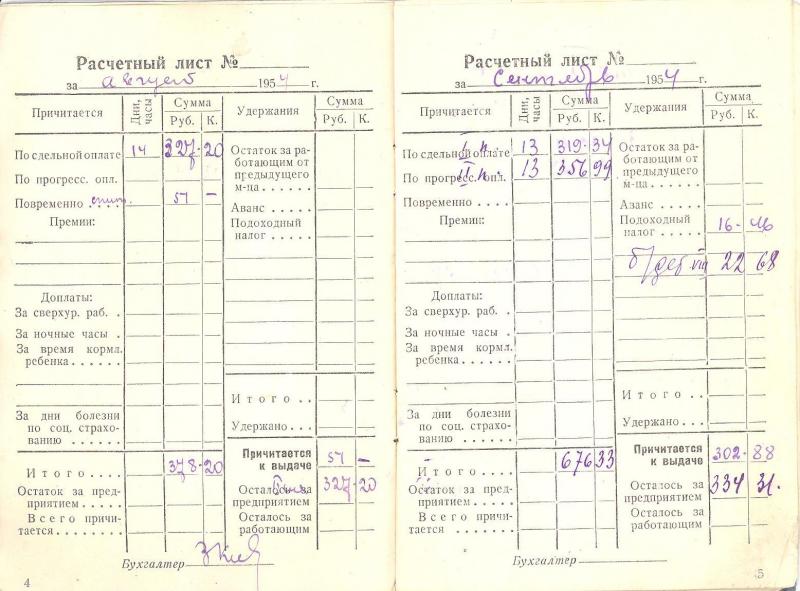 Расчетный лист №
за август 1954 г.
Причитается
Дни, часы
Сумма
Руб. К.
Удержания
Сумма
Руб. К.
По сдельной оплате 14 327-20
По прогресс. опл.
Повременно 51 -
Премии:
Доплаты:
За сверхур. раб. .
За ночные часы .
За время кормл.
ребенка . . . . . .
За дни болезни
по соц. страхо-
ванию . . . . . .
Итого . . . . 378-20
Остаток за пред-
приятием . . . . .
Всего причи-
тается . . . . . . . .
Остаток за ра-
ботающим от
предыдущего
м-ца . . . . . .
Аванс . . . . .
Подоходный
налог . . . . . .
Итого . .
Удержано .
Причитается
к выдаче 51 -
Осталось за
предприятием 327-20
Осталось за
работающим
Бухгалтер
4
Расчетный лист №
за Сентябрь 1954 г.
Причитается
Дни, часы
Сумма
Руб. К.
Удержания
Сумма
Руб. К.
По сдельной оплате I п. 13 319-34
По прогресс. опл. II п. 13 356 99
Повременно . . . .
Премии:
Доплаты:
За сверхур. раб. .
За ночные часы .
За время кормл.
ребенка . . . . . .
За дни болезни
по соц. страхо-
ванию . . . . . .
Итого . . . . 676 33
Остаток за пред-
приятием . . . . .
Всего причи-
тается . . . . . . . .
Остаток за ра-
ботающим от
предыдущего
м-ца . . . . . .
Аванс . . . . .
Подоходный
налог . . . . . . 16-46
22 68
Итого . .
Удержано . .
Причитается
к выдаче 302-88
Осталось за
предприятием 334 31.
Осталось за
работающим
Бухгалтер
5